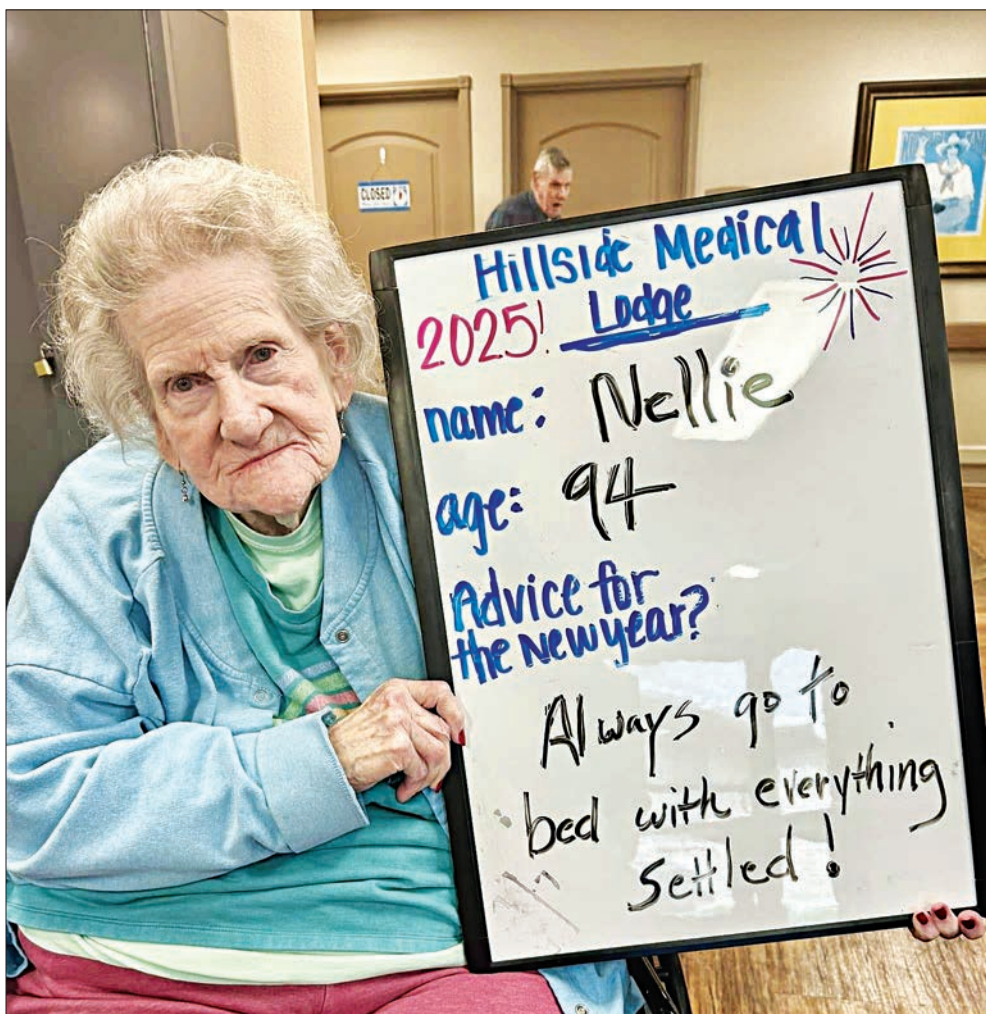 CLOSED
Hillside Medical
2025! Lodge
name: Nellie
age: 94
Advice for
the New year?
Always go to
bed with everything
settled!